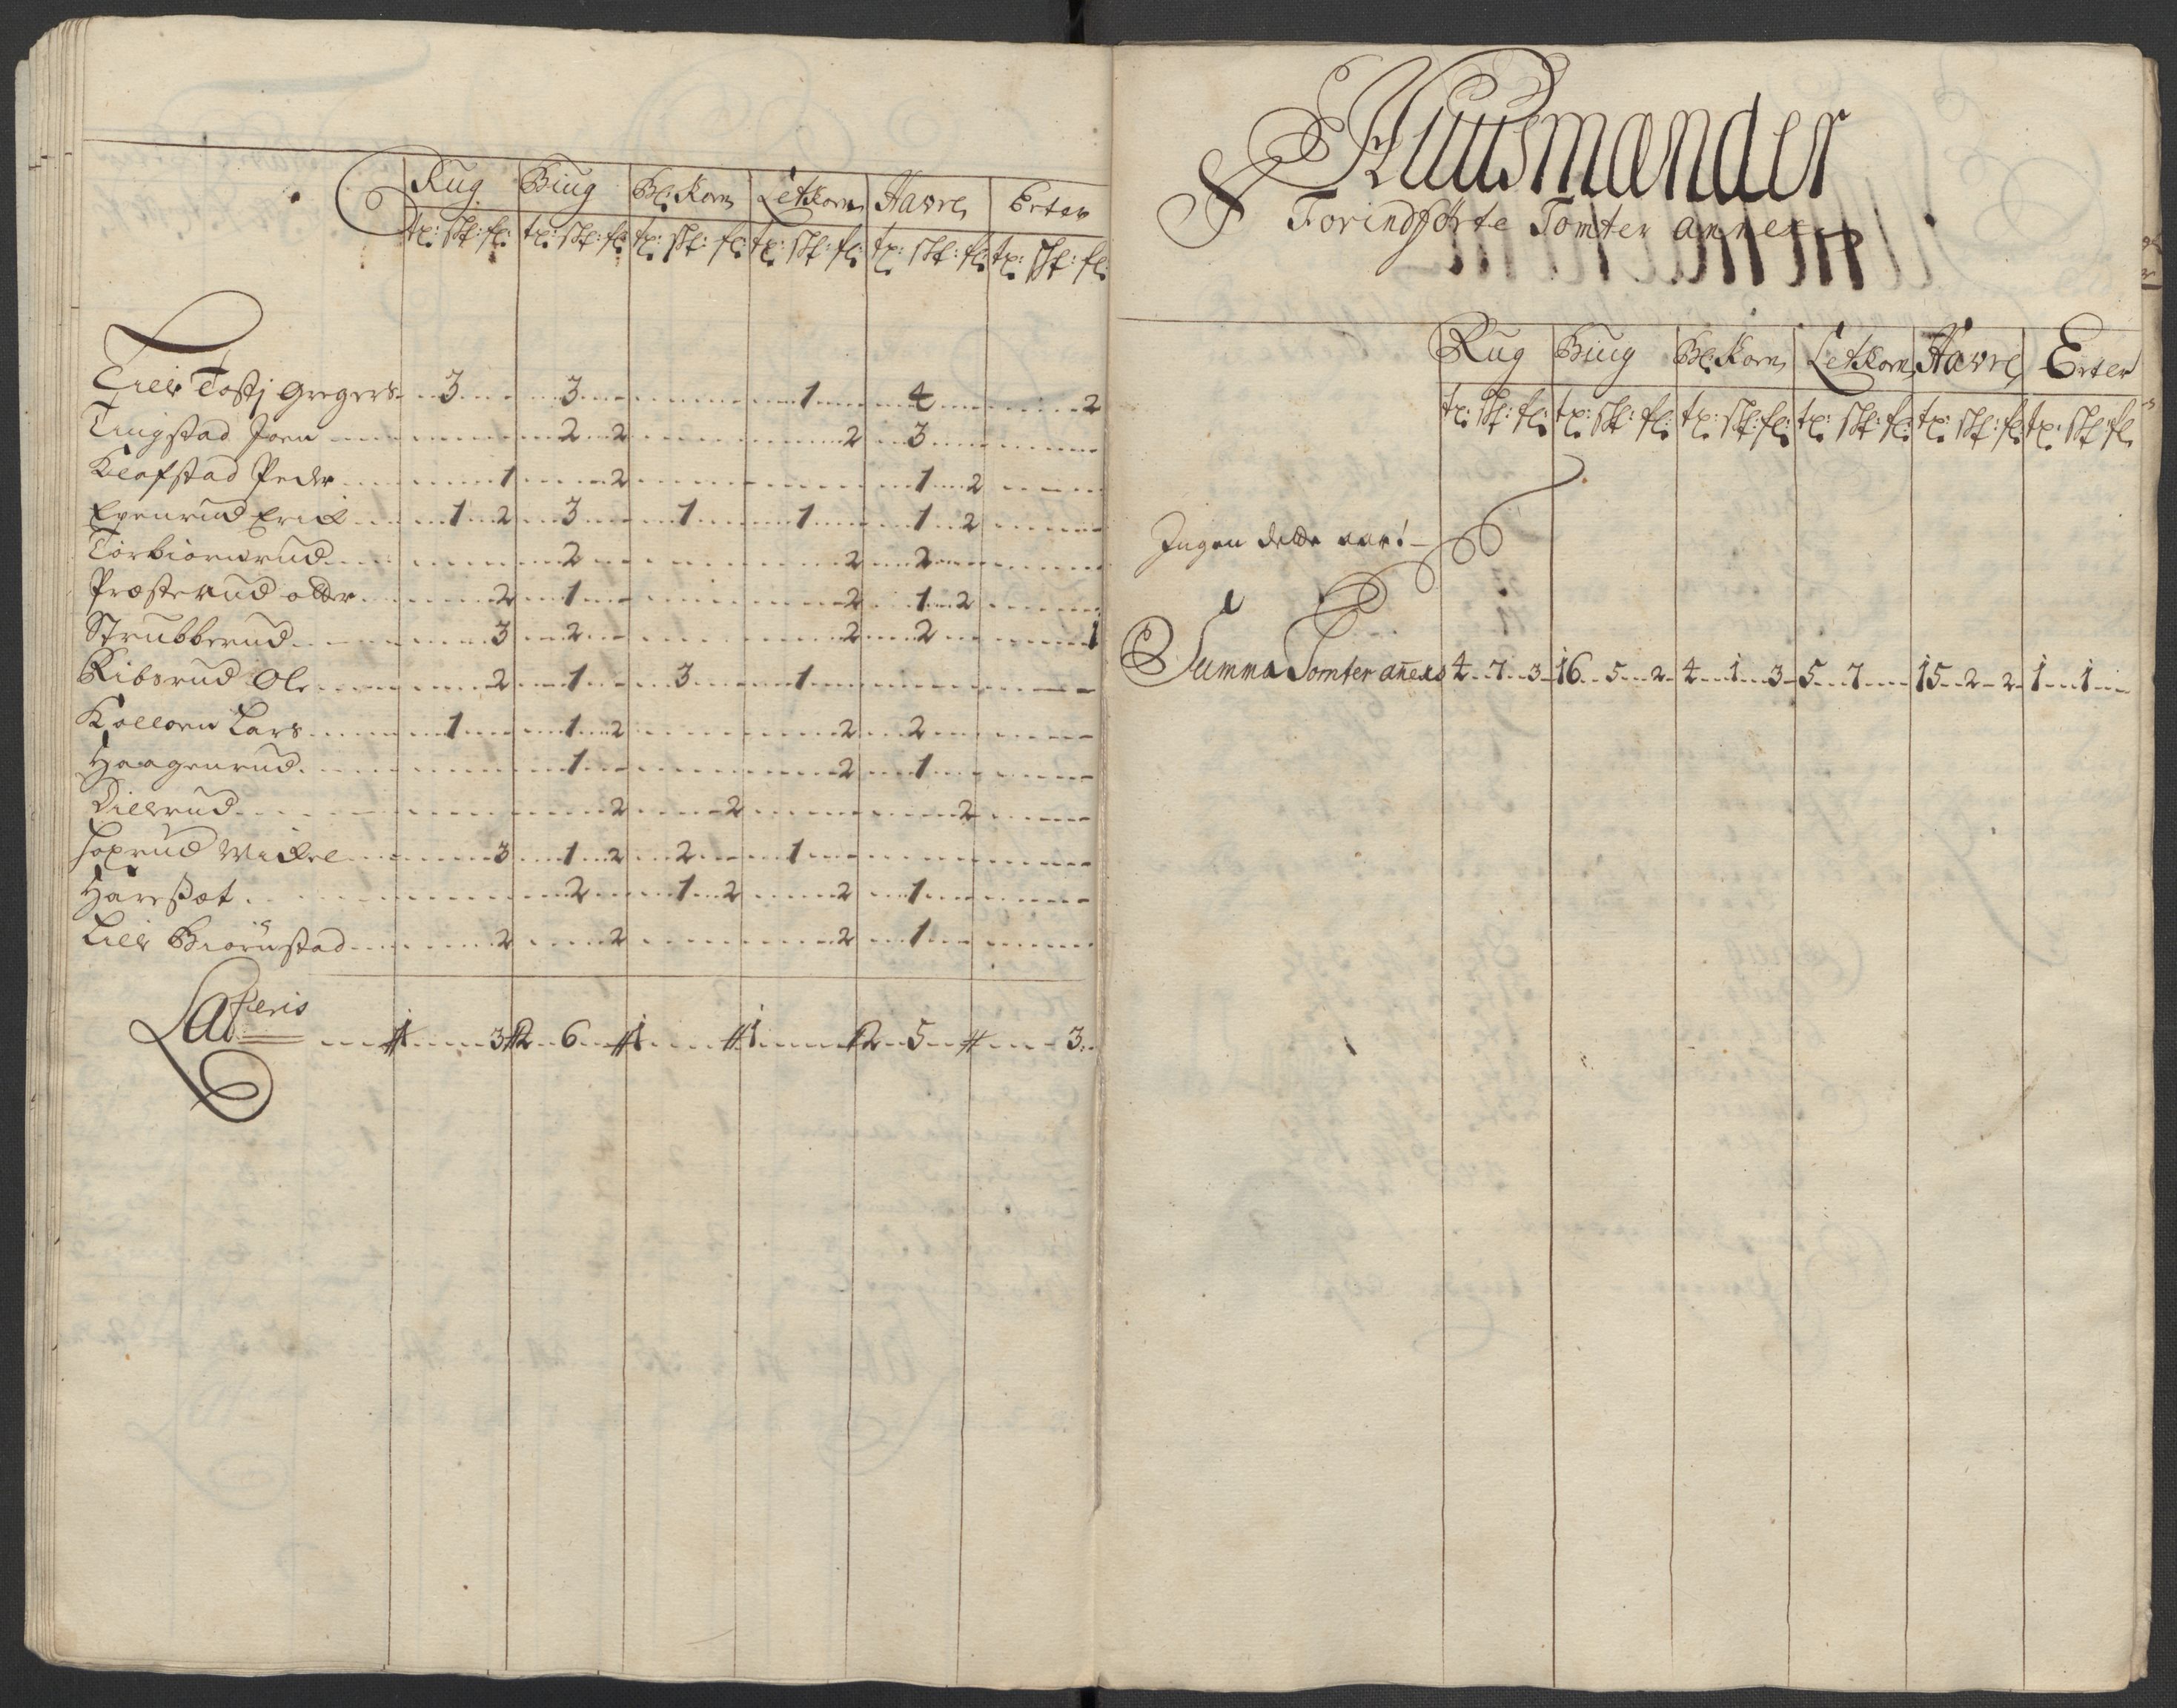 Rug Biug Bl: Korn Letkorn Havre Erter
tr: skp: fl: tr: skp: fl: tr: skp: fl: tr: skp: fl: tr: skp: fl: tr: skp: fl:
Lille Tostj Gregers 3 3 1 4 2
Tingstad Joen 2 2 2 3
Klafstad Peder 1 2 1 2
Evenrud Erick 1 2 3 1 1 1 2
Torbiørnsrud 2 2 2
Præsterud 2 1 2 1 2
Strubberud 3 2 2 2 1
Ribsrud Ole 2 1 3 1
Kolloen Lars 1 1 2 2 2
Haagenrud 1 2 1
Dillerud 2 2 2
Soprud Mickel 3 1 2 2 1
Haresæt 2 1 2 2 1
Lille Biørnstad 2 2 2 1
Lateris 1 3 2 6 1 1 2 5 3
Huusmænder
Forindførte Tomter annex
Rug Biug Bl: Korn Letkorn Havre Erter
tr: skp: fl: tr: skp: fl: tr: skp: fl: tr: skp: fl: tr: skp: fl: tr: skp: fl:
Ingen dette aar!
Summa Tomter anexs 4 7 3 16 5 2 4 1 3 5 7 15 2 2 1 1